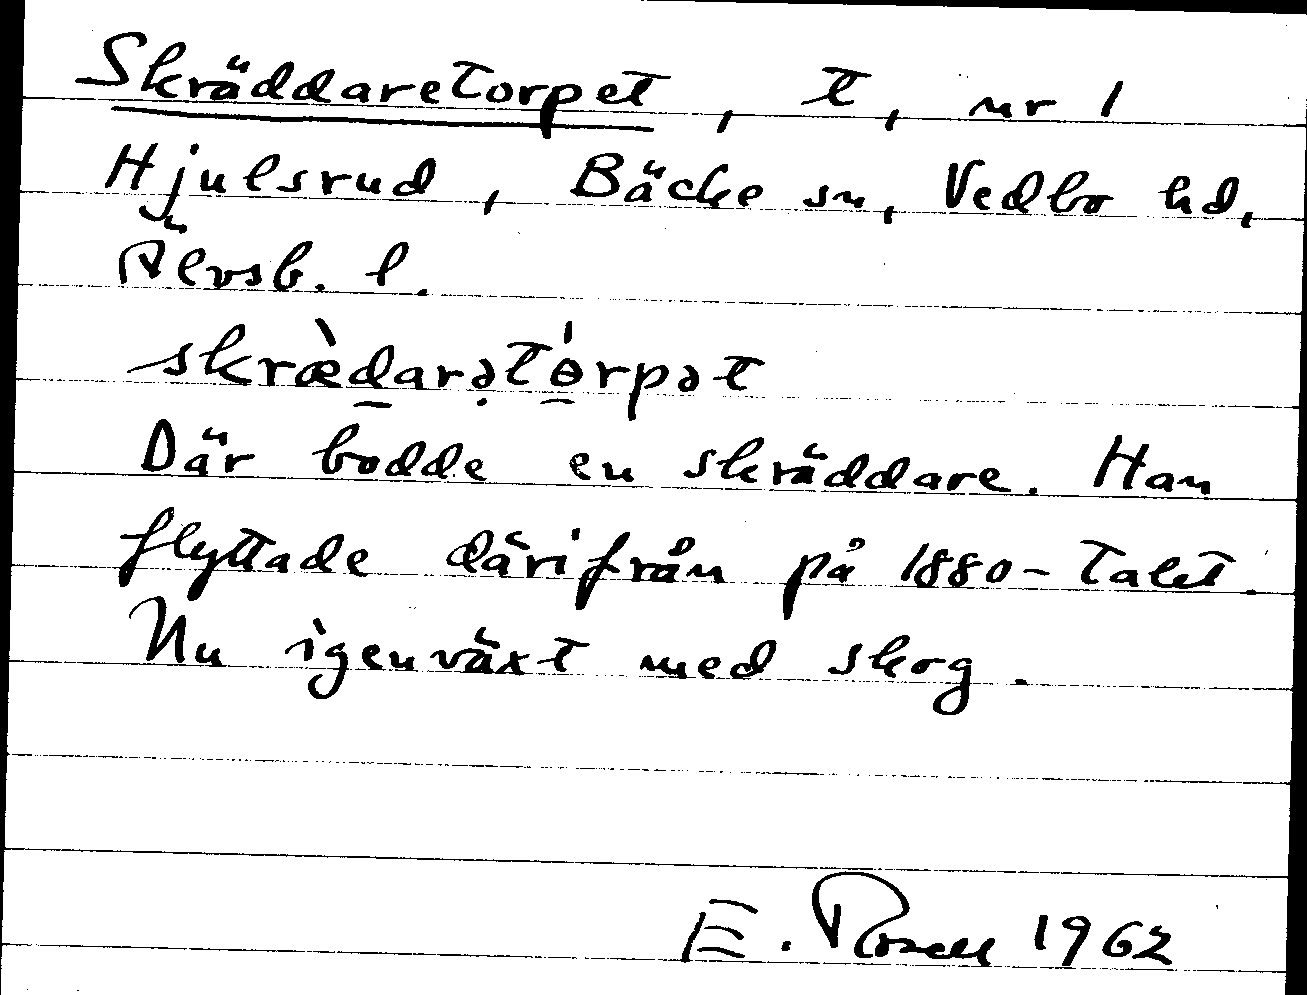 Skräddaretorpet, t, nr 1
Hjulsrud, Bäcke sn, Vedbo hd,
Älvsb. l.
skræ̀d̲arə̣tɵ̲́rpət
Där bodde en skräddare. Han
flyttade därifrån på 1880-talet.
Nu igenväxt med skog.
E. Rosell 1962